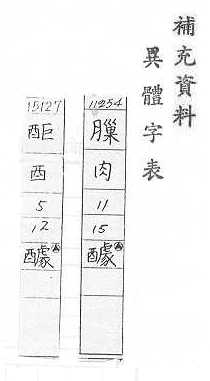 補充資料
異體字表
11254
肉
11
15
醵
15127
酉
5
12
醵